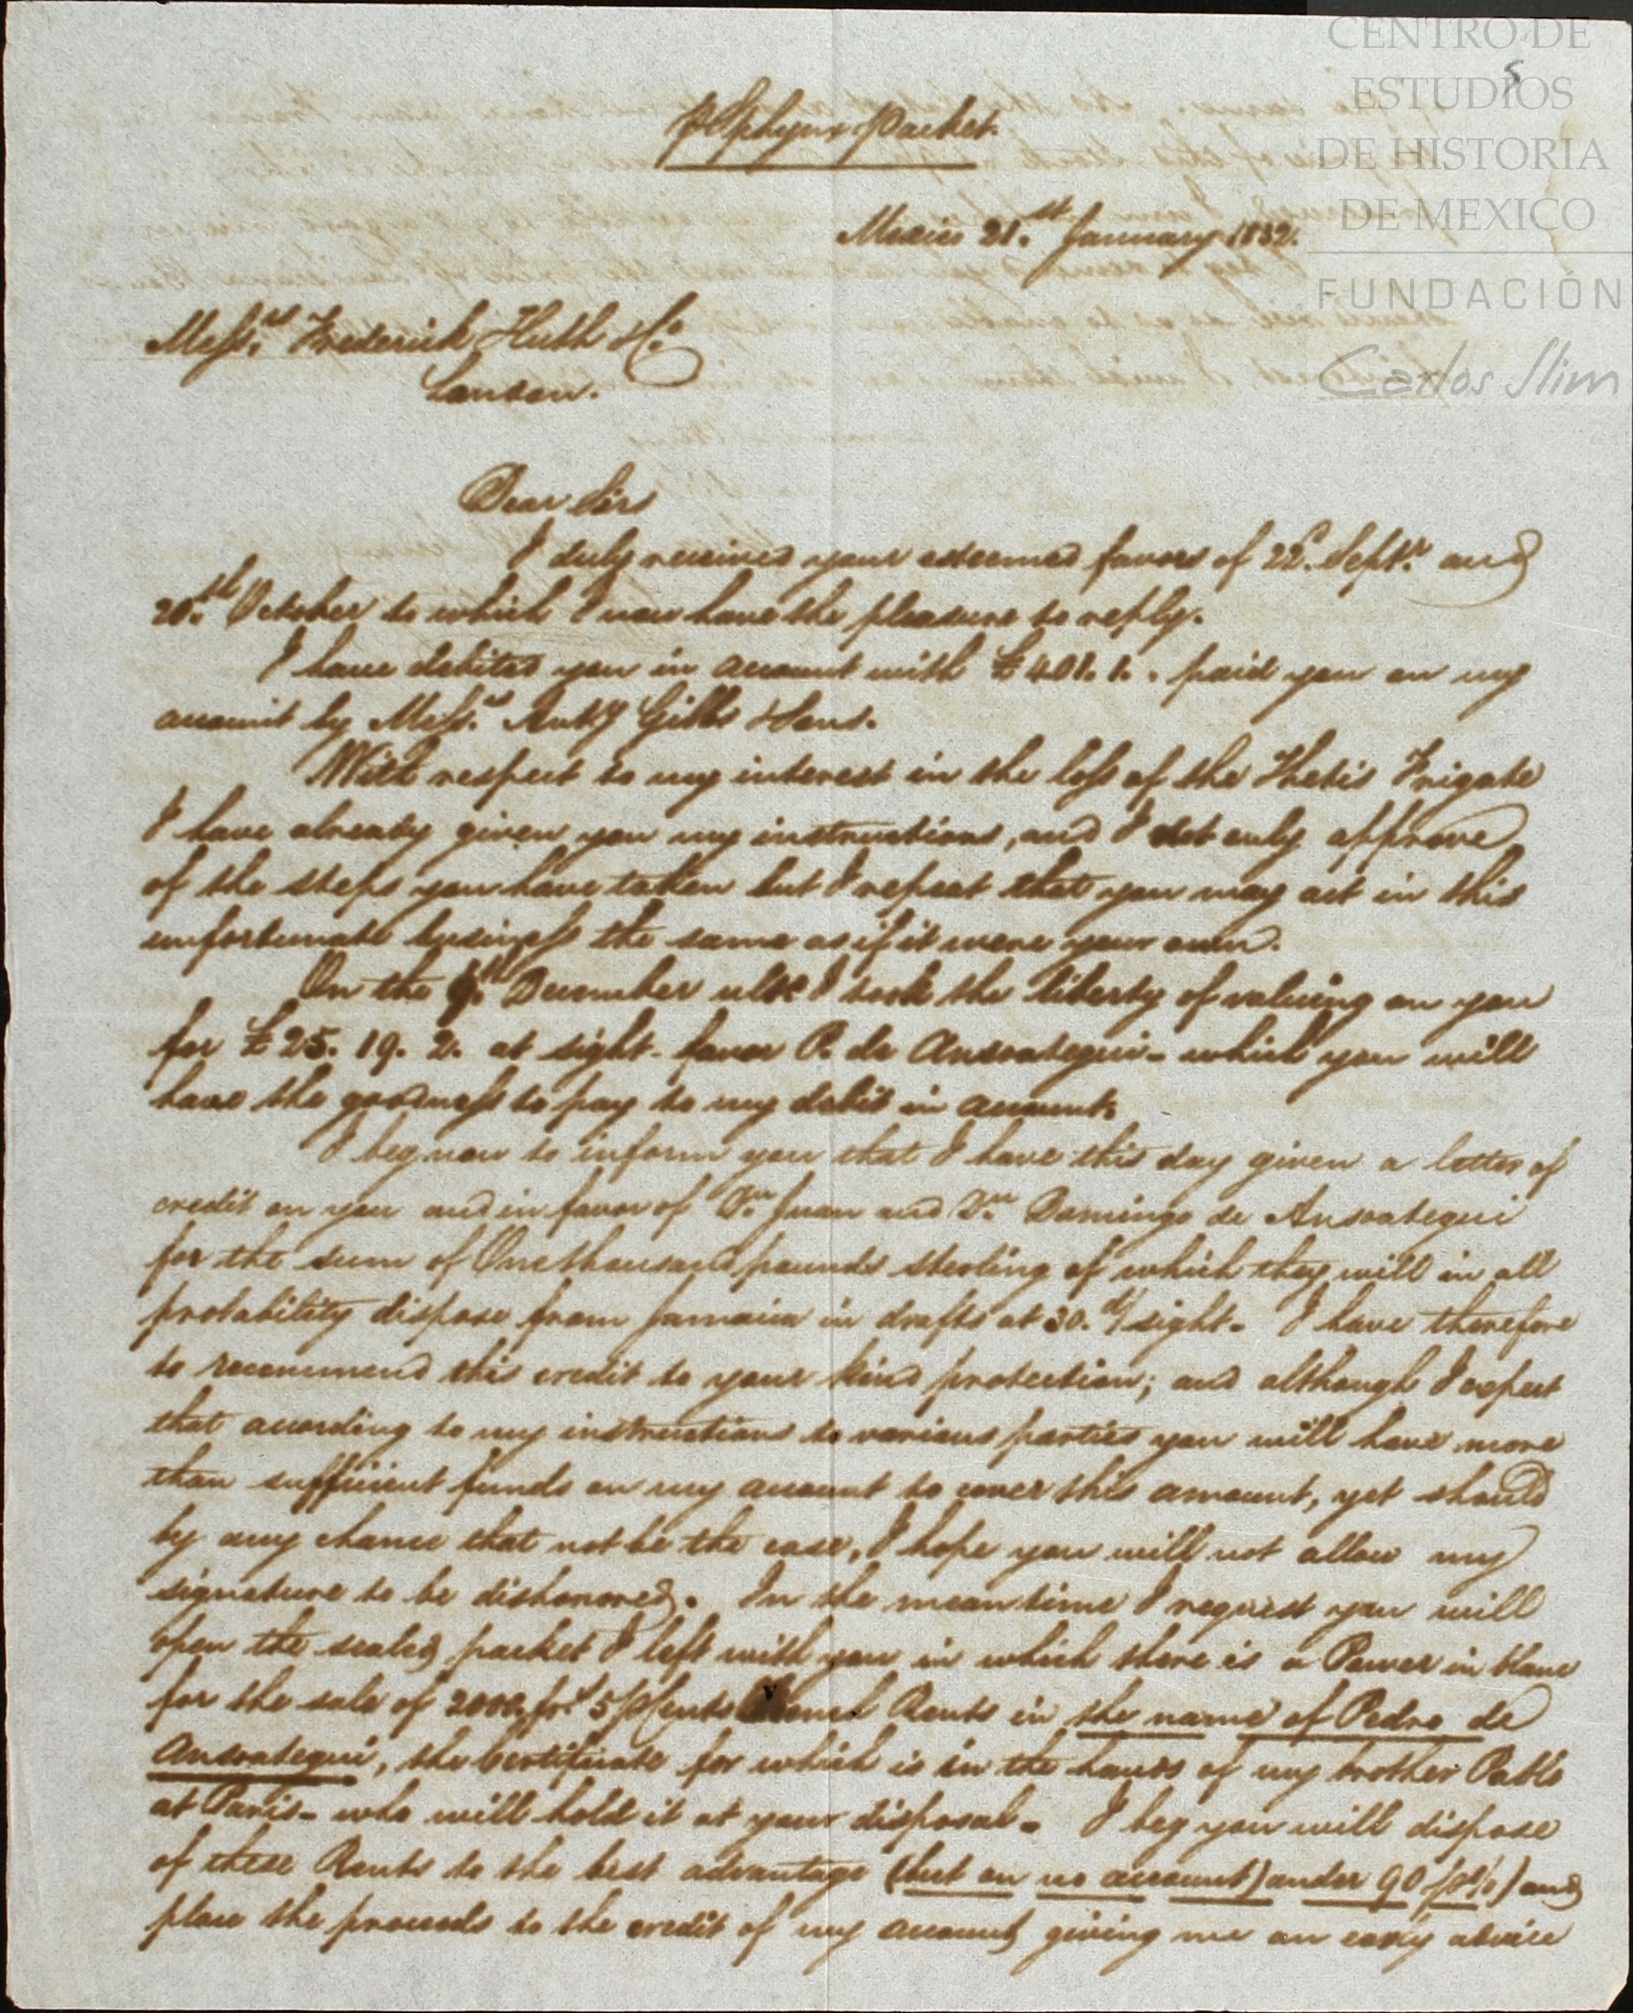 CENTRO DE
ESTUDIOS
DE HISTORIA
DE MEXICO
FUNDACIÓN
Carlos Slim
5
p Sphynx Packet.
Mexico 21.st January 1832.
Mess.rs Frederick Huth & Co
London.
Dear Sirs
I duly received your esteemed favors of 22d. Septr. and
20.th October to which I now have the pleasure to reply.
I have debited you in account with £401.1.. paid you on my
account by Mess.rs Anty Gibbs & Sons.
With respect to my interest in the loss of the Thetis Frigate
I have already given you my instructions, and I not only approve
of the steps you have taken but I repeat that you may act in this
unfortunate business the same as if it were your own.
On the th December ulto. I took the liberty of valuing on you
for £25.19.2. at sight favor P. de Ansoategui - which you will
have the goodness to pay to my debit in account.
I beg now to inform you that I have this day given a letter of
credit on you and in favor of Dn. Juan and Dn. Domingo de Ansoategui
for the sum of One thousand pounds sterling of which they will in all
probability dispose from Jamaica in drafts at 30. d/ sight. I have therefore
to recommend this credit to your kind protection; and although I expect
that according to my instructions to various parties you will have more
than sufficient funds on my account to cover this amount, yet should
by any chance that not be the case, I hope you will not allow my
signature to be dishonored. In the meantime I request you will
open the sealed packet I left with you in which there is a Power in blanc
for the sale of 2000. frs 5 p Cents French Rents in the name of Pedro de
Ansoategui, the Certificate for which is in the hands of my brother Pablo
at Paris - who will hold it at your disposal. I beg you will dispose
of these Rents to the best advantage (but on no account) under 90 p%) and
place the proceeds to the credit of my account, giving me an early advice